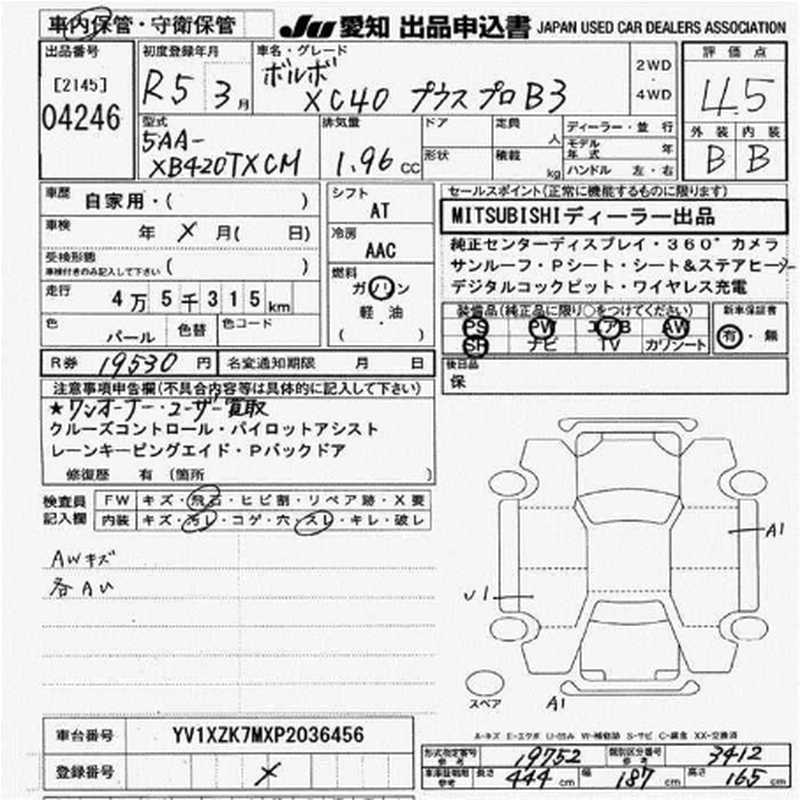 車内保管・守衛保管 JU 愛知 出品申込書 JAPAN USED CAR DEALERS ASSOCIATION
出品番号 初度登録年月 車名・グレード 2WD ・ 4WD 評価点
[2145] R5 3月 ボルボ 4.5
04246 XC40 プラス プロ B3
外装 内装
B B
型式 排気量 ドア 定員 人 ディーラー・並行
5AA- モデル年式 年
XB420TXCM 1.96 CC 形状 積載 kg ハンドル 左・右
車歴 自家用・( ) シフト AT
車検 年 X 月( 日) 冷房 AAC
受検形態 ( )
車検付きのみ記入して下さい
燃料 ガソリン
軽・油
( )
走行 4万5千315km
色 パール 色替 色コード
R券 19530 円 名変通知期限 月 日
セールスポイント(正常に機能するものに限ります)
MITSUBISHIディーラー出品
純正センターディスプレイ・360°カメラ
サンルーフ・Pシート・シート&ステアヒーター
デジタルコックピット・ワイヤレス充電
装備品(純正品に限り○をつけてください) 新車保証書
PS PW エアB AW 有・無
SR ナビ TV カワシート
後日品
保
注意事項申告欄(不具合内容等は具体的に記入して下さい)
★ワンオーナー・ユーザー買取
クルーズコントロール・パイロットアシスト
レーンキーピングエイド・Pバックドア
修復歴 有 (箇所 )
検査員記入欄
FW キズ・飛石・ヒビ割・リペア跡・X要
内装 キズ・汚レ・コゲ・穴・スレ・キレ・破レ
AWキズ
各AU
A1
U1
スペア A1
A-キズ E-エクボ U-凹み W-補修跡 S-サビ C-腐食 XX-交換済
車台番号 YV1XZK7MXP2036456
登録番号 X
形式指定番号 参考 19752 類別区分番号 参考 3412
車庫証明用 参考 長さ 444 cm 幅 187 cm 高さ 165 cm